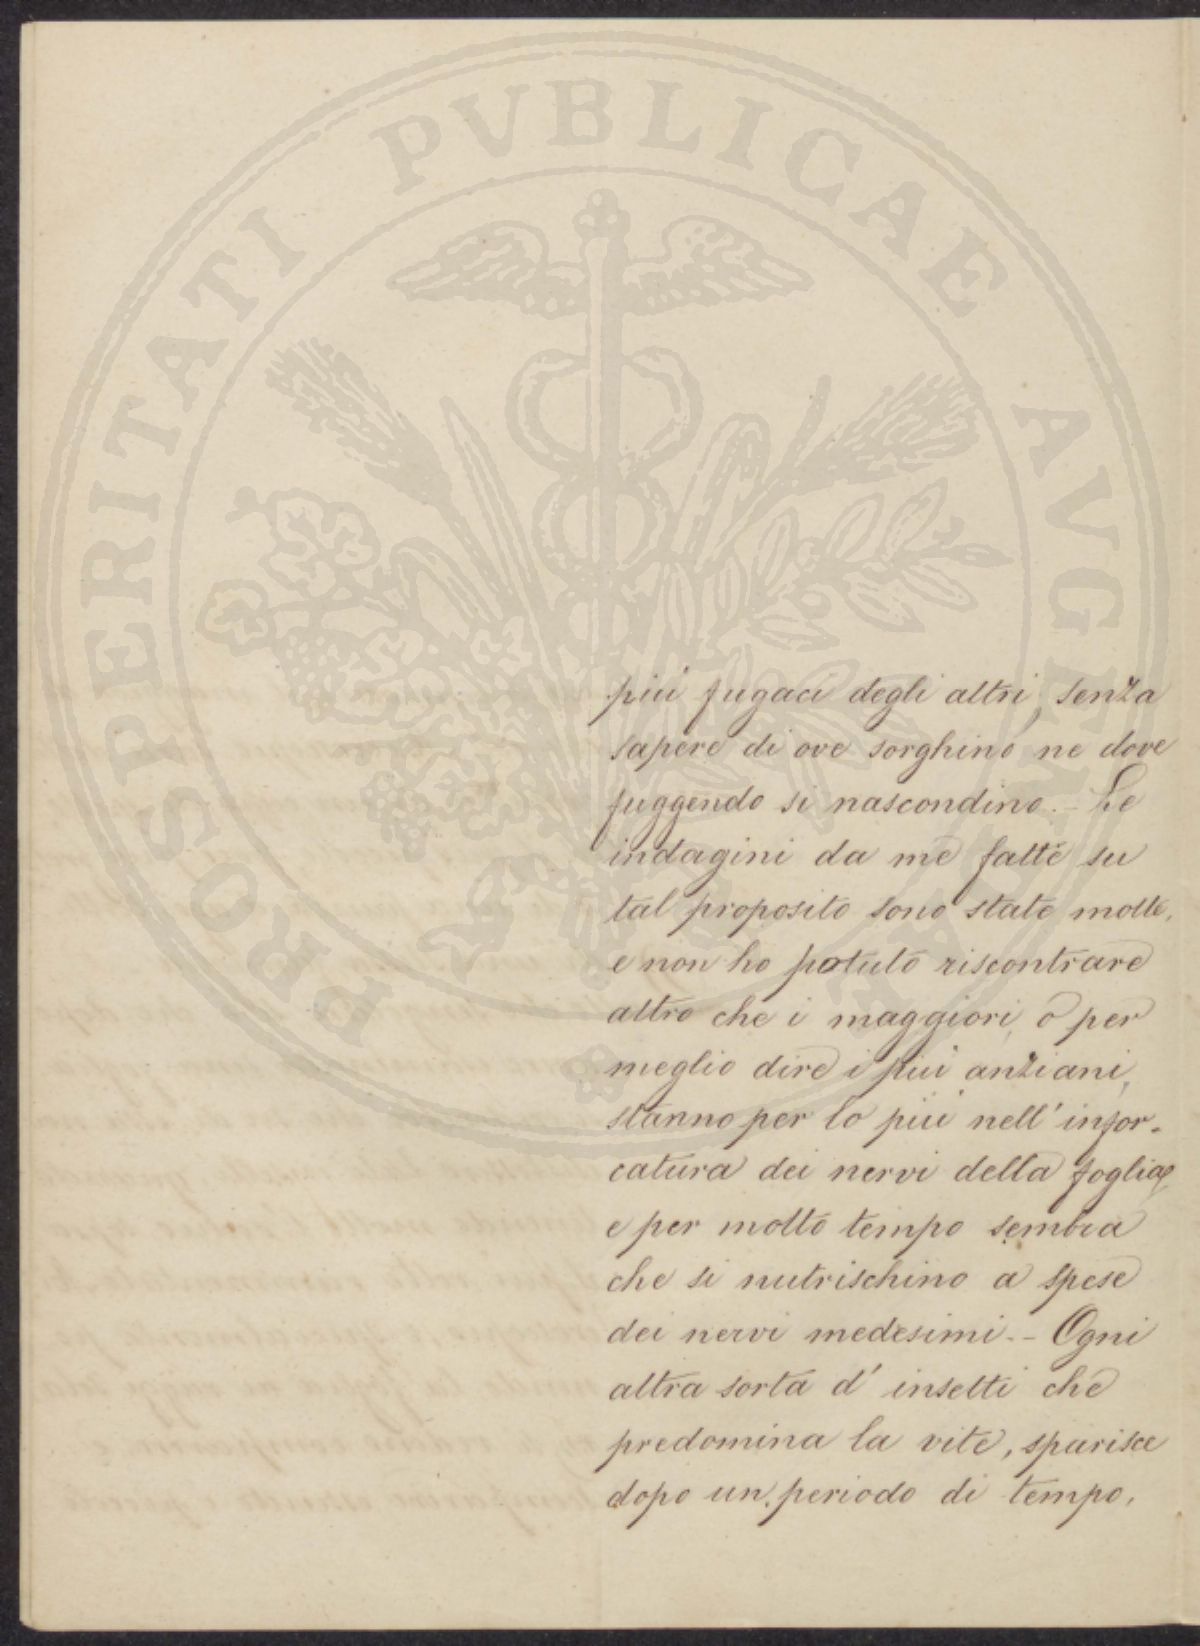 PROSPERITATI PVBLICAE AVGENDAE
più fugaci degli altri, senza
sapere di ove sorghino, ne dove
fuggendo si nascondino. - Le
indagini da me fatte su
tal proposito sono state molte,
e non ho potuto riscontrare
altro che i maggiori, o per
meglio dire i più anziani,
stanno per lo più nell' infor-
catura dei nervi della foglia,
e per molto tempo sembra
che si nutrischino a spese
dei nervi medesimi. - Ogni
altra sorta d' insetti che
predomina la vite, sparisce
dopo un periodo di tempo,